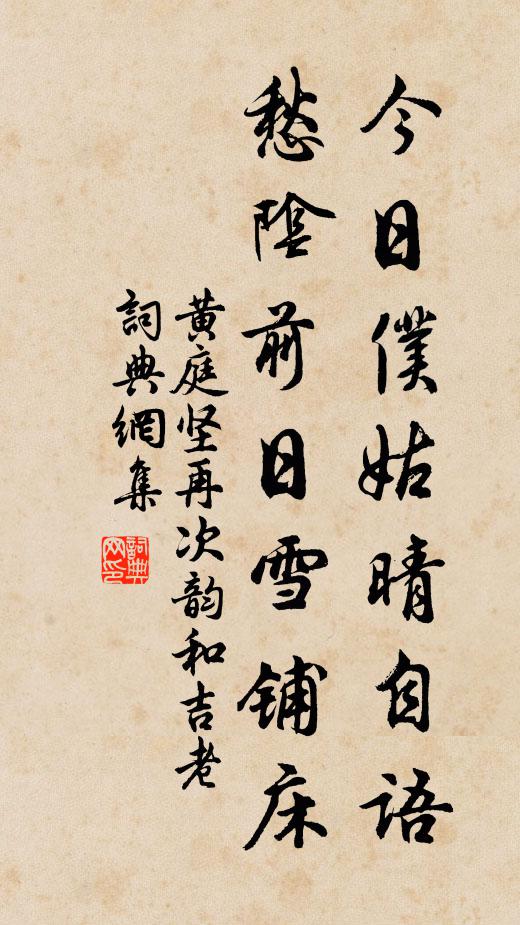 今日僕姑晴自語
愁陰前日雪铺床
黄庭坚再次韵和吉老
詞典網集
詞典网印